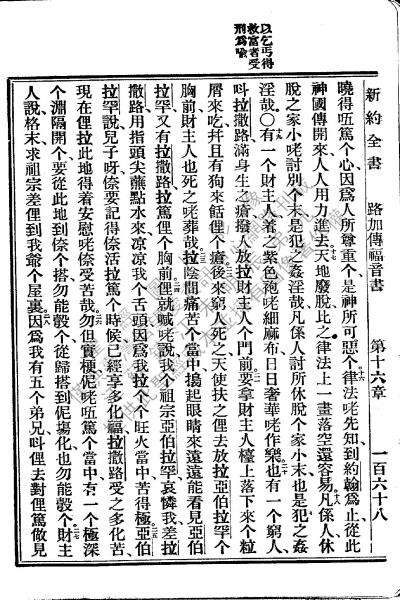 新約全書　路加傳福音書　第十六章　一百六十八
以乞丐得
救富者受
刑爲喩
曉得㑚篤個心因爲人所尊重個是神所可惡個律法咾先知到約翰爲止從此
神國傳開來人人用力進去天地廢脫比之律法上一畫落空還容易凡係人休
脫之家小咾討別個末是犯之姦淫哉凡係人討所休脫個家小末也是犯之姦
淫哉〇有一個財主人着之紫色袍咾細麻布日日奢華咾作樂也有一個窮人
呌拉撒路滿身生之瘡撥人放拉財主人個門前要拿財主人檯上落下來個粒
屑來吃幷且有狗來餂俚個瘡後來窮人死之天使扶之俚去放拉亞伯拉罕個
胸前財主人也死之咾葬哉拉陰間痛苦個當中擡起眼睛來遠遠能看見亞伯
拉罕又有拉撒路拉篤俚個胸前俚就喊咾說我個祖宗亞伯拉罕哀憐我差拉
撒路用指頭尖蘸點水來凉凉我個舌頭因爲我拉个個旺火當中苦得極亞伯
拉罕說兒子呀倷要記得倷活拉篤個時候已經享多化福拉撒路受之多化苦
現在俚拉此地得着安慰咾倷受苦哉勿但實梗伲咾㑚篤個當中有一個極深
個淵隔開個要從此地到倷個搭勿能彀個從歸搭到伲塲化也勿能彀個財主
人說格末求祖宗差俚到我爺個屋裏因爲我有五個弟兄呌俚去對俚篤做見